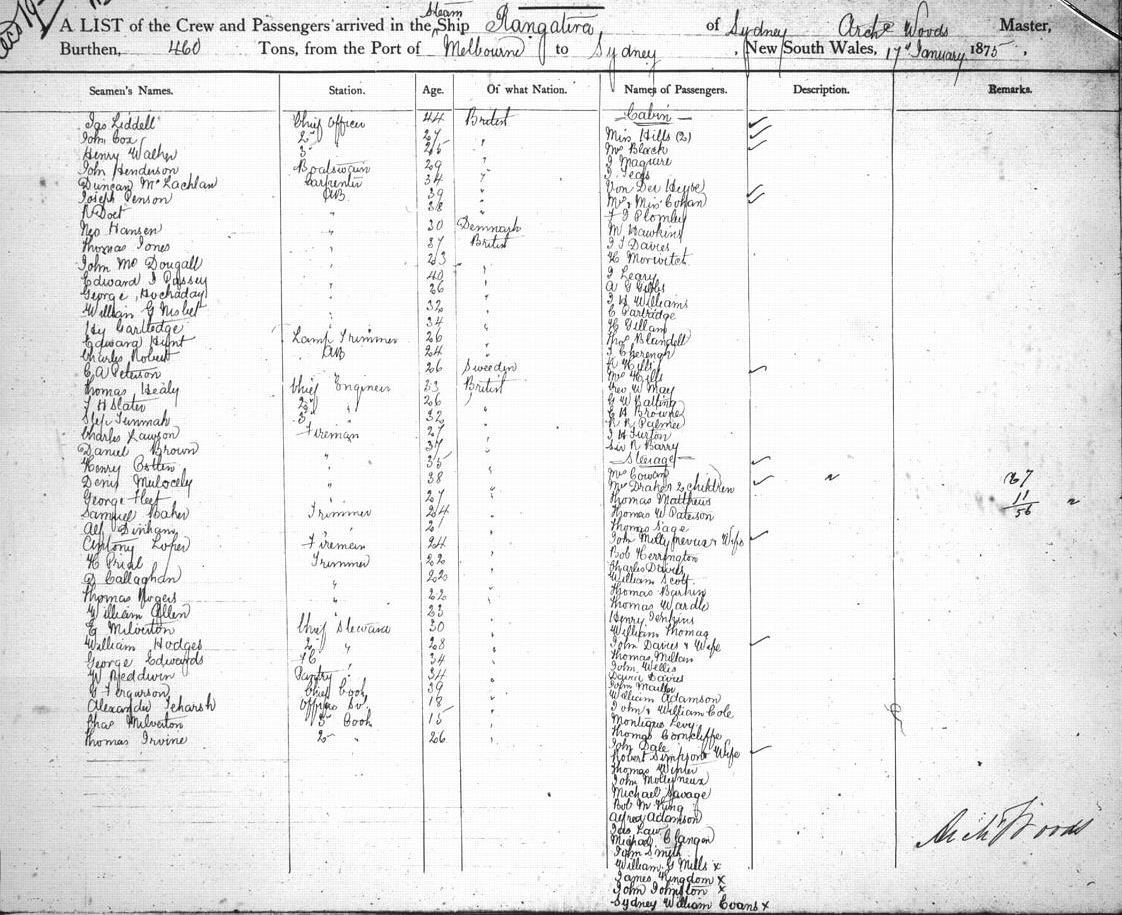 A LIST of the Crew and Passengers arrived in the Steam Ship Rangatira of Sydney Archd Woods Master,
Burthen, 460 Tons, from the Port of Melbourne to Sydney, New South Wales, 17th January 1875,
Seamen's Names. Station. Age. Of what Nation. Names of Passengers. Description. Remarks.
Jas Liddell Chief Officer 44 British
John Cox 2d 27 "
Henry Walker 3d 25 "
John Henderson Boatswain 29 "
Duncan McLachlan Carpenter 34 "
Joseph Penson AB 39 "
38 "
Hansen " 30 Denmark
Thomas Jones " 37 British
John McDougall " 23
Edward J Passey " 40 "
George Hockaday " 26 "
William G Nisbet " 32 "
Hy Cartledge " 34 "
Edward Hunt Lamp Trimmer 26 "
Charles Robert AB 24 "
C A Peterson 26 Sweeden
Thomas Healy Chief Engineer 33 British
J H Slater 2d " 26 "
3d " 32 "
Charles Lawson Fireman 27 "
Daniel Brown 37 "
Henry " 35 "
Denis " 38 "
George Fleet " 27 "
Samuel Baker Trimmer 24 "
Alf Dinham " 21 "
Antony Loper Fireman 24 "
H Prial Trimmer 22 "
D Callaghan " 22 "
Thomas Rogers " 22 "
William Allen " 23
E Milverton Chief Steward 30 "
William Hodges 2d " 28 "
George Edwards " 34 "
W Beddwin Pantry " 34 "
G Fergurson Chief Cook 39 "
Alexander Officers Sv. 18 "
Chas Milverton 3d Cook 15 "
Thomas Irvine 2d " 26 "
Cabin
Miss Hills (2)
Mrs Black
J Maguire
Von Der Heyde
Mr & Miss Cohan
F J Plomley
M Hawkins
J J Davies
H Morwitch
J Leary
A G Gibbs
J H Williams
C Partridge
H Gillam
Thos Blundell
Mrs Hills
Rev W May
G W Balling
E H Browne
R R Palmer
J H Furton
Sir R Barry
Steerage
Mrs Cowan
Mrs Draken 2 children "
Thomas Matthews
Thomas W Paterson
Thomas Sage
John Mollynevux & Wife
Bob Herrington
Charles Davies
William Scott
Thomas Barkins
Thomas Wardle
Henry Jenkins
William Thomas
John Davies & Wife
Thomas Milton
John Wellis
David Davies
John
William Adamson
John & William Cole
Montique Levy
Thomas Corncliffe
John Dale
Robert Simpson & Wife
Thomas Winter
John Mollyneux
Michael Savage
Bob McKing
Alfred Adamson
Jas Law
Michael Clangan
John Smyth
William G Mills x
James Kingdom x
John Johnston x
Sydney William Evans x
67
11
56
Archd Woods